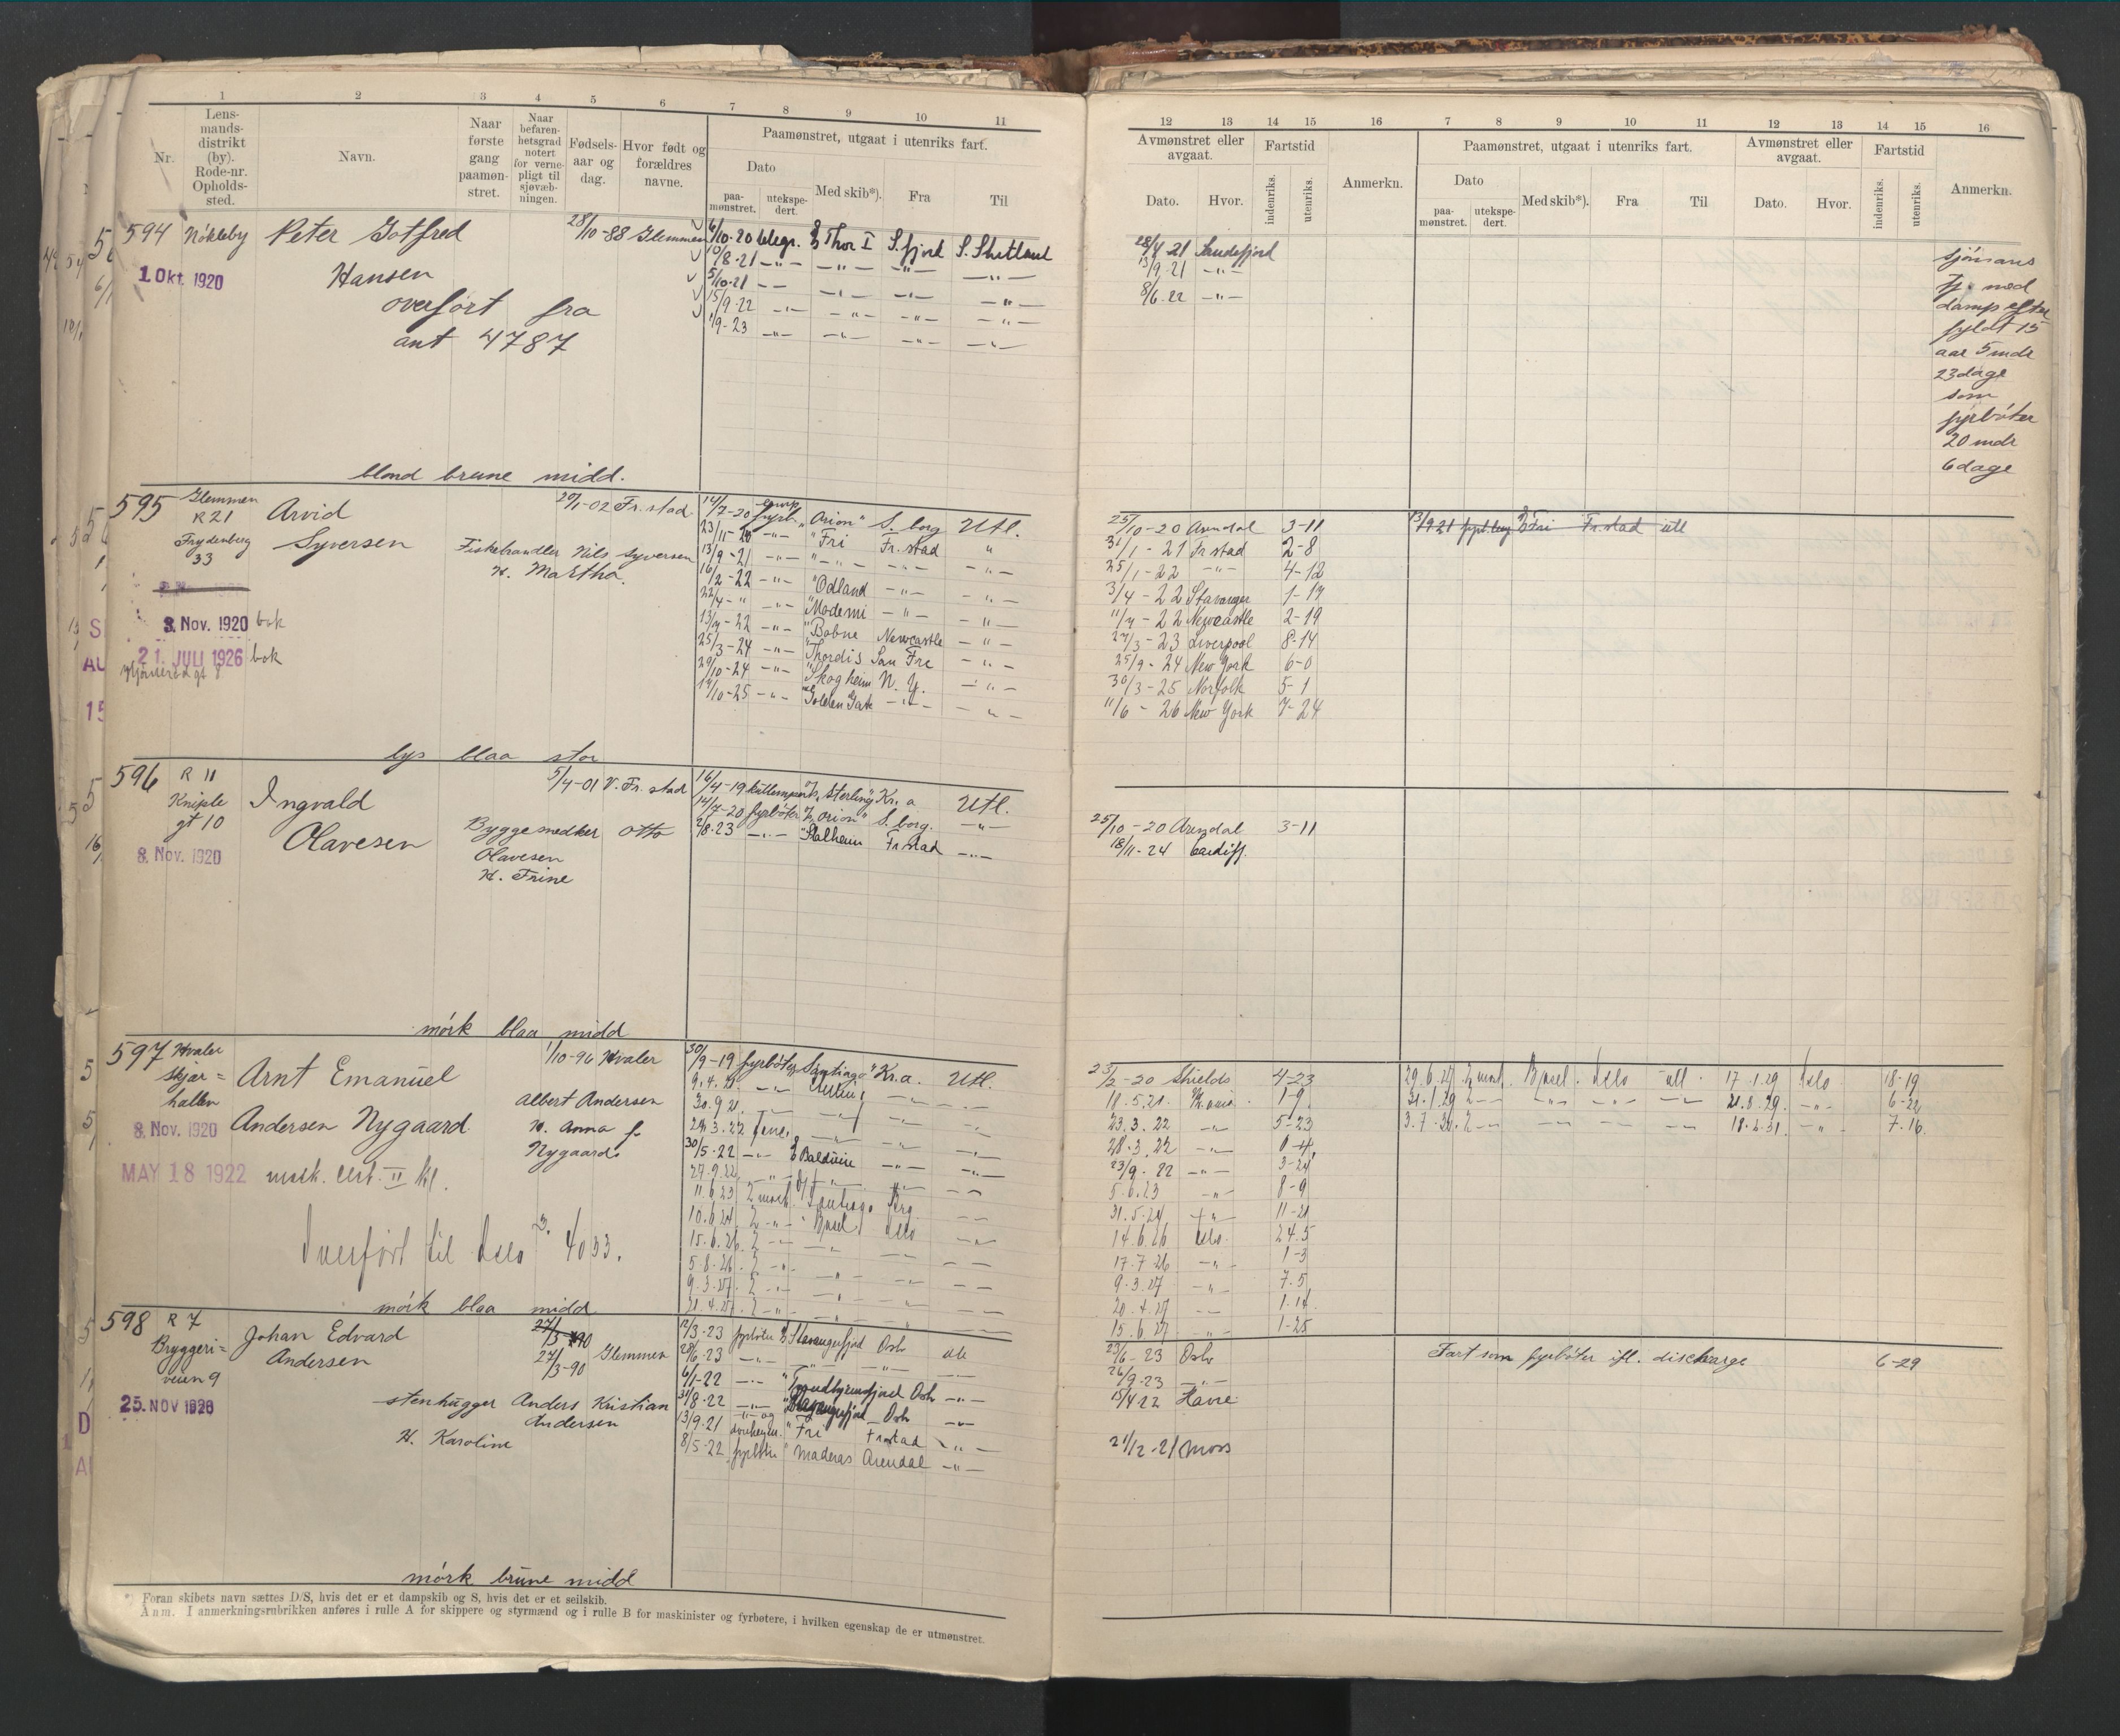 1 2 3 4 5 6 7 8 9 10 11
Nr. Lens-mands-distrikt (by). Rode-nr. Opholds-sted. Navn. Naar første gang paamøn-stret. Naar befaren-hetsgrad notert for verne-pligt til sjøvæb-ningen. Fødsels-aar og dag. Hvor født og forældres navne. Paamønstret, utgaat i utenriks fart.
Dato Med skib*). Fra Til
paa-mønstret. utekspe-dert.
594 Nökleby Peter Gotfred 28/10-88 Glemmen 6/10-20 Thor I S.fjord S. Shetland
1 Okt. 1920 Hansen 10/8-21 —"— —"— —"— —"—
overfört fra 5/10-21 —"— —"— —"— —"—
ant 4787 15/9-22 —"— —"— —"— —"—
1/9-23 —"— —"— —"— —"—
blond brune midd.
595 Glemmen R 21 Arvid 29/1-02 Fr.stad 14/7-20 fyrb. "Orion" S. borg Utl.
Frydenberg 33 Syversen Fiskehandler Nils Syversen 23/11-20 —"— "Fri Fr.stad "
H. Martha. 13/9-21 —"— " —"— —"— —"—
16/2-22 —"— "Odland —"— —"—
22/4-" —"— "Modemi —"— —"—
3. Nov. 1920 bok 13/7-22 —"— "Bobne Newcastle —"—
21. JULI 1926 bok 25/3-24 —"— "Thordis San Fr —"—
29/10-24 —"— "Skogheim N. Y. —"—
17/10-25 —"— Golden Gate —"— —"—
lys blaa stor
596 R 11 Ingvald 5/4-01 V. Fr. stad 16/4-19 kullemper "Sterling" Kr. a Utl.
Kniple gt 10 Olavesen Byggesnedker Otto 14/7-20 fyrböter "Orion" S. borg. —"—
8. Nov. 1920 Olavesen 2/8-23 —"— "Stalheim Fr.stad —"—
H. Trine
mörk blaa midd
597 Hvaler Arnt Emanuel 1/10-96 Hvaler 30/9-19 fyrböter "Santiago" Kr.a. Utl.
skjær= hallen Albert Andersen 9.4.21 —"—
8. Nov. 1920 Andersen Nygaard H. Anna f. 30.9.21
Nygaard. 29.3.22
MAY 18 1922 mask. cert. II kl. 30/5-22 —"— Balduin —"— —"—
27.9.22 —"—
11.6.23 2 mask. Santiago
Overført til Oslo 4033. 10.6.24 2 —"— Basel Oslo —"—
15.6.26 2 —"—
5.8.26 2 —"—
9.3.27 2 —"—
mörk blaa midd 21.4.27 2 —"—
598 R 7 Johan Edvard 27/3-90 12/3-23 fyrböter Stavangerfjord Oslo utl
Bryggeri= veien 9 Andersen 27/3-90 Glemmen 28/6-23 —"— " —"—
6/1-22 —"— "Trondhjemsfjord Oslo —"—
25. NOV 1920 stenhugger Anders Kristian 31/8-22 —"— Stavangerfjord Oslo —"—
Andersen 13/9-21 "Fri Fr.stad —"—
H. Karoline 8/5-22 fyrböter "Maderas Arendal —"—
mörk brune midd
*) Foran skibets navn sættes D/S, hvis det er et dampskib og S, hvis det er et seilskib.
Anm. I anmerkningsrubrikken anføres i rulle A for skippere og styrmænd og i rulle B for maskinister og fyrbøtere, i hvilken egenskap de er utmønstret.
12 13 14 15 16 7 8 9 10 11 12 13 14 15 16
Avmønstret eller avgaat. Fartstid Anmerkn. Paamønstret, utgaat i utenriks fart. Avmønstret eller avgaat. Fartstid Anmerkn.
Dato. Hvor. indenriks. utenriks. Dato Med skib*). Fra Til Dato. Hvor. indenriks. utenriks.
paa-mønstret. utekspe-dert.
28/4-21 Sandefjord sjömans
13/9-21 —"— Tj. med
8/6-22 —"— damp efter
fyldt 15
aar 5 mdr
23 dage
som
fyrböter
20 mdr
6 dage
25/10-20 Arendal 3-11 13/9 21 Fri Fr.stad utl
31/1-21 Fr stad 2-8
25/1-22 —"— 4-12
3/4-22 Stavanger 1-17
11/7-22 Newcastle 2-19
27/3-23 Liverpool 8-14
25/9-24 New York 6-0
30/3-25 Norfolk 5-1
11/6-26 New York 7-24
25/10-20 Arendal 3-11
18/11-24 Cardiff.
23/2-20 Shields 4-23 29.6.27 2 mask. Basel. Oslo utl. 17.1.29 Oslo 18-19
18.5.21. 1-9 31.1.29 2 —"— —"— —"— —"— 21.8.29. —"— 6-22
23.3.22 —"— 5-23 3.7.30. 2 —"— —"— —"— —"— 18.2.31. —"— 7.16.
28.3.22 —"—
23/9-22 —"— 3-24
5.6.23 —"— 8-9
31.5.24 —"— 11-21
14.6.26 Oslo. 24.5
17.7.26 —"— 1-3
9.3.27 —"— 7.5
20.4.27 —"— 1.14
15.6.27 —"— 1-25
23/6-23 Oslo Fart som fyrböter ifl. discharge 6-29
26/9-23 —"—
15/4-22 Havre
21/12-21 Moss